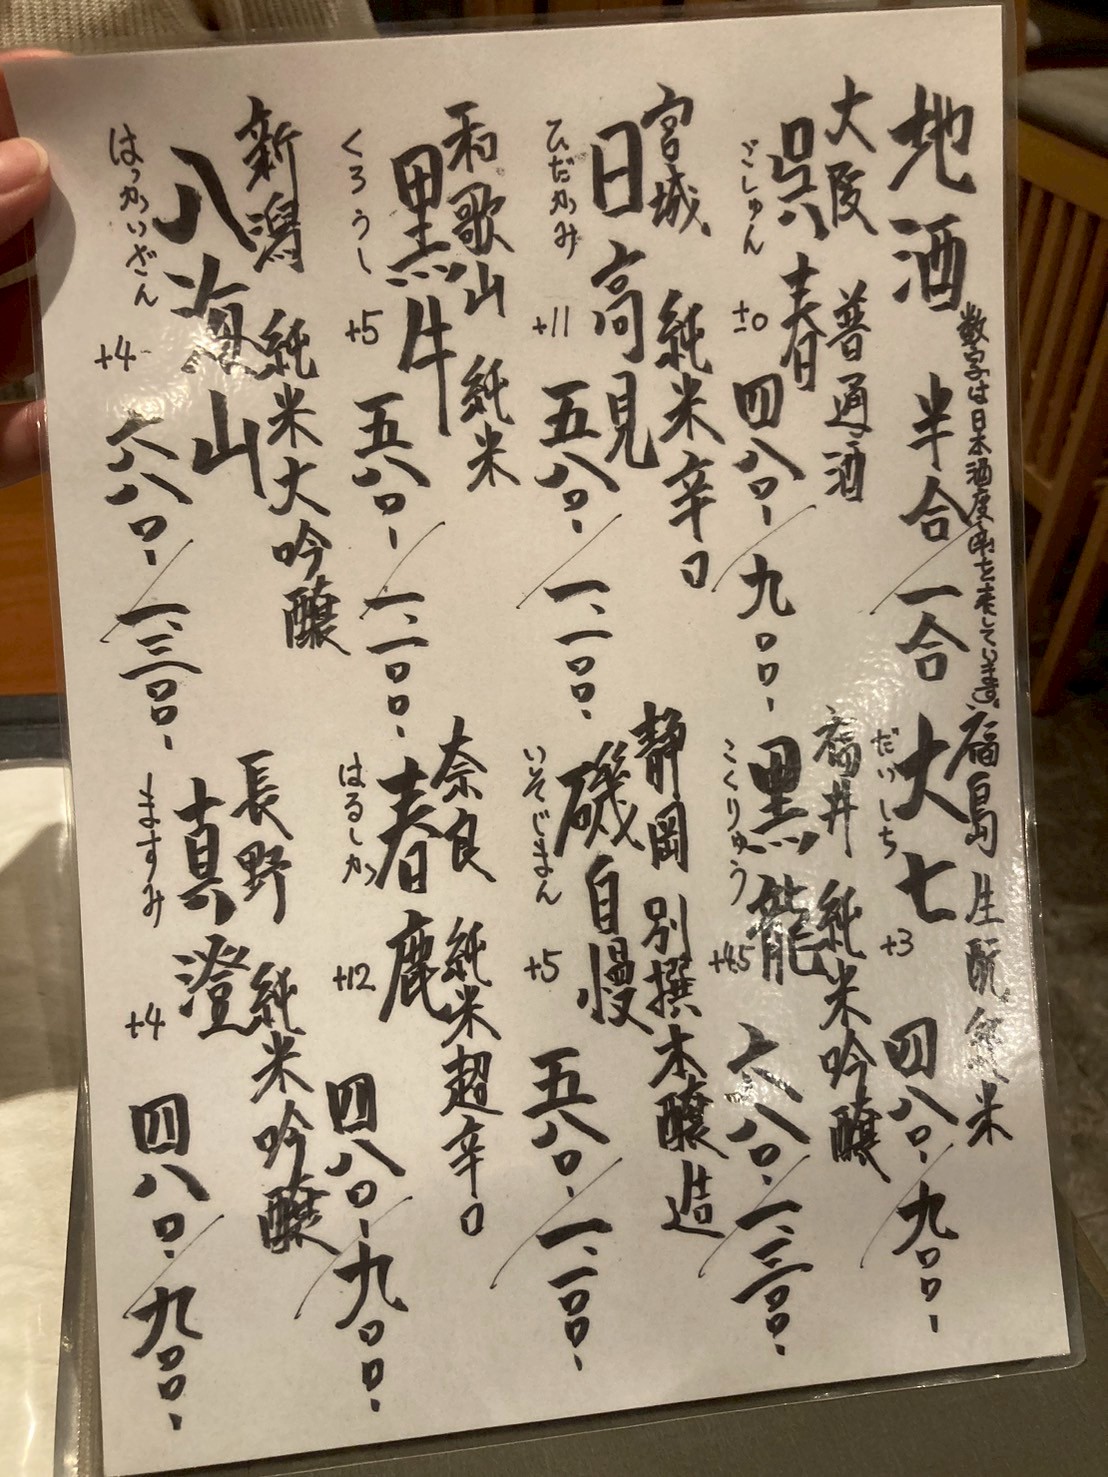 地酒 半合/一合
数字は日本酒度を表しています。
大阪 普通酒
呉春
ごしゅん
±0
四八〇、/九〇〇、
宮城 純米辛口
日高見
ひだかみ
+11
五八〇、/一、一〇〇、
和歌山 純米
黒牛
くろうし
+5
五八〇、/一、一〇〇、
新潟 純米大吟醸
八海山
はっかいざん
+4
六八〇、/一、三〇〇、
福島 生酛純米
大七
だいしち
+3
四八〇、/九〇〇、
福井 純米吟醸
黒龍
こくりゅう
+4.5
六八〇、/一、三〇〇、
静岡 別撰本醸造
磯自慢
いそじまん
+5
五八〇、/一、一〇〇、
奈良 純米超辛口
春鹿
はるしか
+12
四八〇、/九〇〇、
長野 純米吟醸
真澄
ますみ
+4
四八〇、/九〇〇、